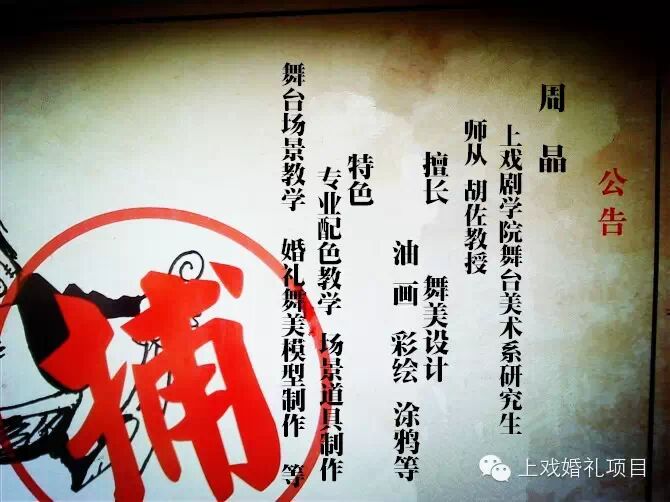 公告
周品
上戏剧学院舞台美术系研究生
师从 胡佐教授
擅长 舞美设计
油画 彩绘 涂鸦等
特色
专业配色教学 场景道具制作
舞台场景教学 婚礼舞美模型制作 等
捕
上戏婚礼项目